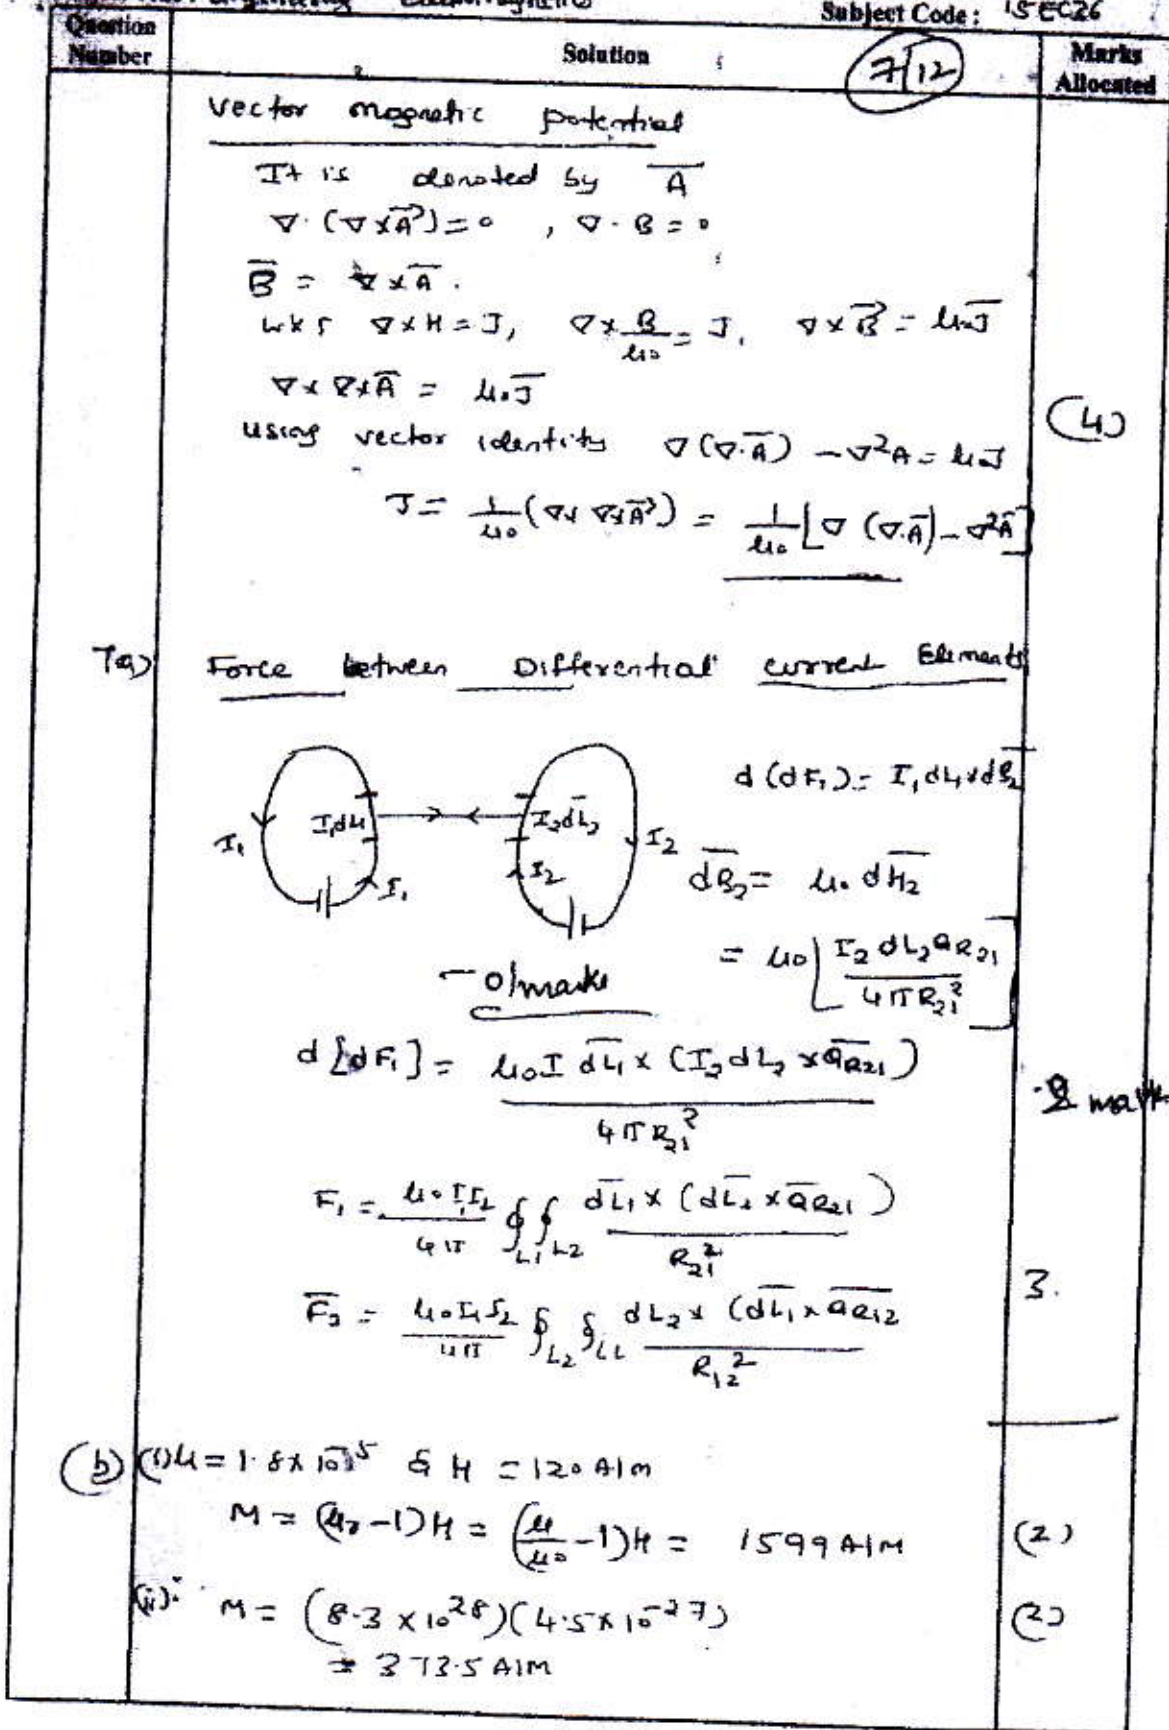 Subject Code : 15EC26
Question Number
Solution
7/12
Marks Allocated
Vector magnetic potential
It is denoted by A̅
∇·(∇×A⃗)=0 , ∇·B=0
B̅ = ∇×A̅.
wkt ∇×H=J, ∇×B/μ0 = J, ∇×B⃗ = μ0J̅
∇×∇×A̅ = μ0J̅
using vector identity ∇(∇·A̅) -∇²A = μ0J
(4)
J = 1/μ0 (∇×∇×A⃗) = 1/μ0 [∇(∇·A̅) - ∇²A̅]
7a) Force between Differential current Elements
d(dF1) = I1dL1×dB̅2
I1 I1dL1 I1
I2dL̅2 I2 I2
dB̅2 = μ0 dH̅2
= μ0 [I2 dL2 aR21 / 4πR21²]
- 01marks
d[dF1] = μ0I dL̅1 × (I2dL2 × a̅R21) / 4πR21²
2 mark
F̅1 = μ0I1I2/4π ∮L1∮L2 dL̅1 × (dL̅2 × a̅R21) / R21²
3.
F̅2 = μ0I1I2/4π ∮L2∮L1 dL2 × (dL̅1 × a̅R12 / R12²
(b) (i) μ = 1.8×10⁻⁵ & H = 120 A/m
M = (μr-1)H = (μ/μ0 -1)H = 1599 A/m
(2)
(ii): M = (8.3×10²⁸)(4.5×10⁻²⁷)
(2)
= 373.5 A/m